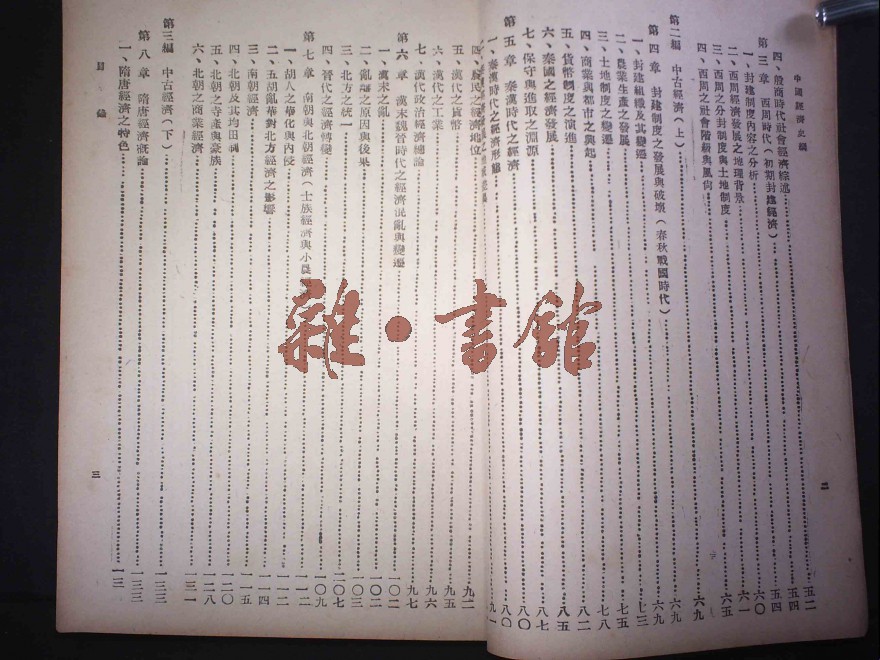 中國經濟史綱
四、殷商時代社會經濟綜述 五二
第三章 西周時代(初期封建經濟) 五四
一、封建制度內容之分析 五四
二、西周經濟發展之地理背景 六〇
三、西周之分封制度與土地制度 六一
四、西周之社會階級與風尙 六五
第二編 中古經濟(上) 六九
第四章 封建制度之發展與破壞(春秋戰國時代) 六九
一、封建組織及其變遷 六九
二、農業生產之發展 七三
三、土地制度之變遷 七五
四、商業與都市之興起 七八
五、貨幣制度之演進 八二
六、秦國之經濟發展 八五
七、保守與進取之淵源 八七
第五章 秦漢時代之經濟 八〇
一、秦漢時代之經濟形態 八〇
九一
二
四、農民之經濟地位 九二
五、漢代之貨幣 九五
六、漢代之工業 九六
七、漢代政治經濟總論 九七
第六章 漢末魏晉時代之經濟混亂與變遷 一〇二
一、漢末之亂 一〇二
二、亂離之原因與後果 一〇三
三、北方之統一 二〇七
四、晉代之經濟轉變 一〇九
第七章 南朝與北朝經濟(士族經濟與小農 一一二
一、胡人之華化與內侵 一一二
二、五胡亂華對北方經濟之影響 一一四
三、南朝經濟 一一五
四、北朝及其均田制 一二〇
五、北朝之寺產與豪族 一二八
六、北朝之商業經濟 一三一
第三編 中古經濟(下) 一三三
第八章 隋唐經濟概論 一三三
一、隋唐經濟之特色 一三
目錄
三
雜·書館